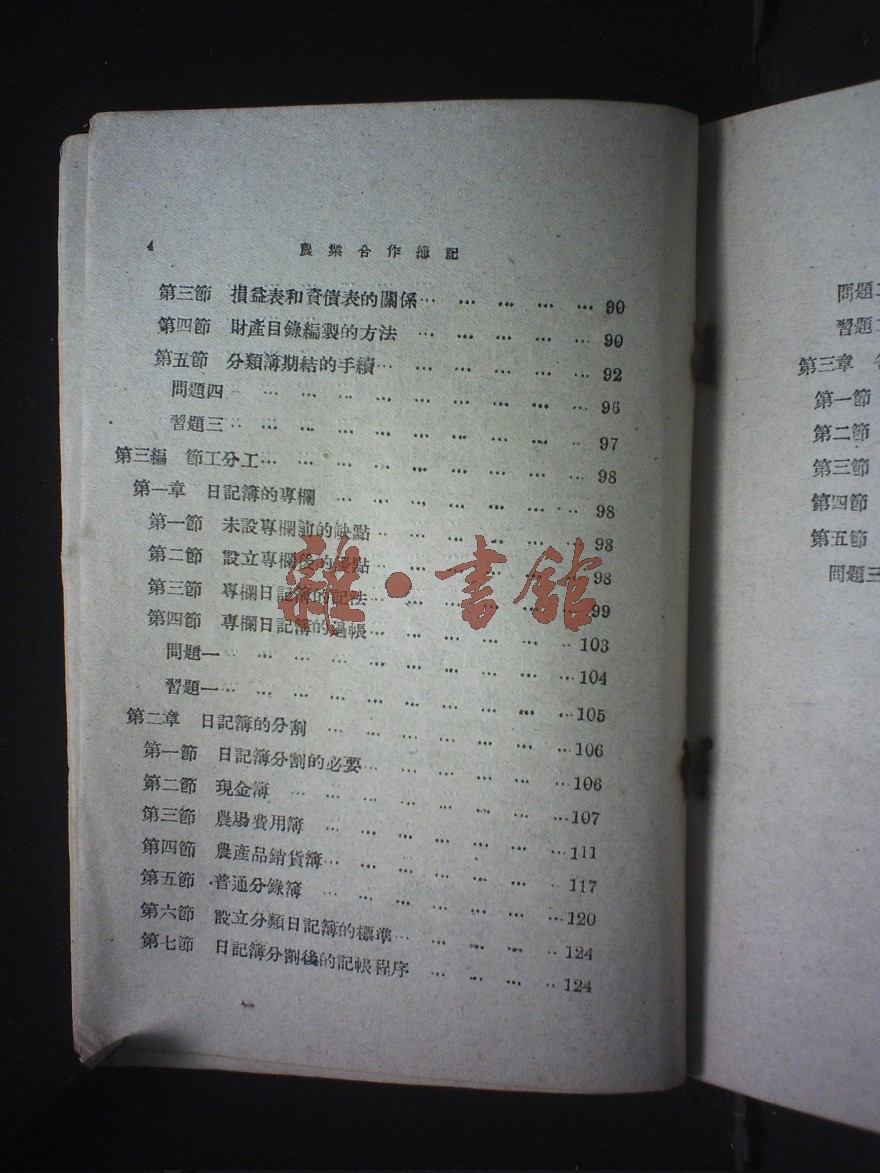 4 農業合作簿記
第三節 損益表和資債表的關係 … … … … … 90
第四節 財產目錄編製的方法 … … … … … 90
第五節 分類簿期結的手續 … … … … … … 92
問題四 … … … … … … … … … 96
習題三 … … … … … … … … … 97
第三編 節工分工 … … … … … … … … 98
第一章 日記簿的專欄 … … … … … … … 98
第一節 未設專欄前的缺點 … … … … … 98
第二節 設立專欄後的優點 … … … … … 98
第三節 專欄日記簿的記法 … … … … … 99
第四節 專欄日記簿的過帳 … … … … … 103
問題一 … … … … … … … … … 104
習題一 … … … … … … … … … 105
第二章 日記簿的分割 … … … … … … … 106
第一節 日記簿分割的必要 … … … … … … 106
第二節 現金簿 … … … … … … … … 107
第三節 農場費用簿 … … … … … … … 111
第四節 農產品銷貨簿 … … … … … … … 117
第五節 普通分錄簿 … … … … … … … 120
第六節 設立分類日記簿的標準 … … … … … 124
第七節 日記簿分割後的記帳程序 … … … … 124
雜·書館
問題二
習題二
第三章
第一節
第二節
第三節
第四節
第五節
問題三